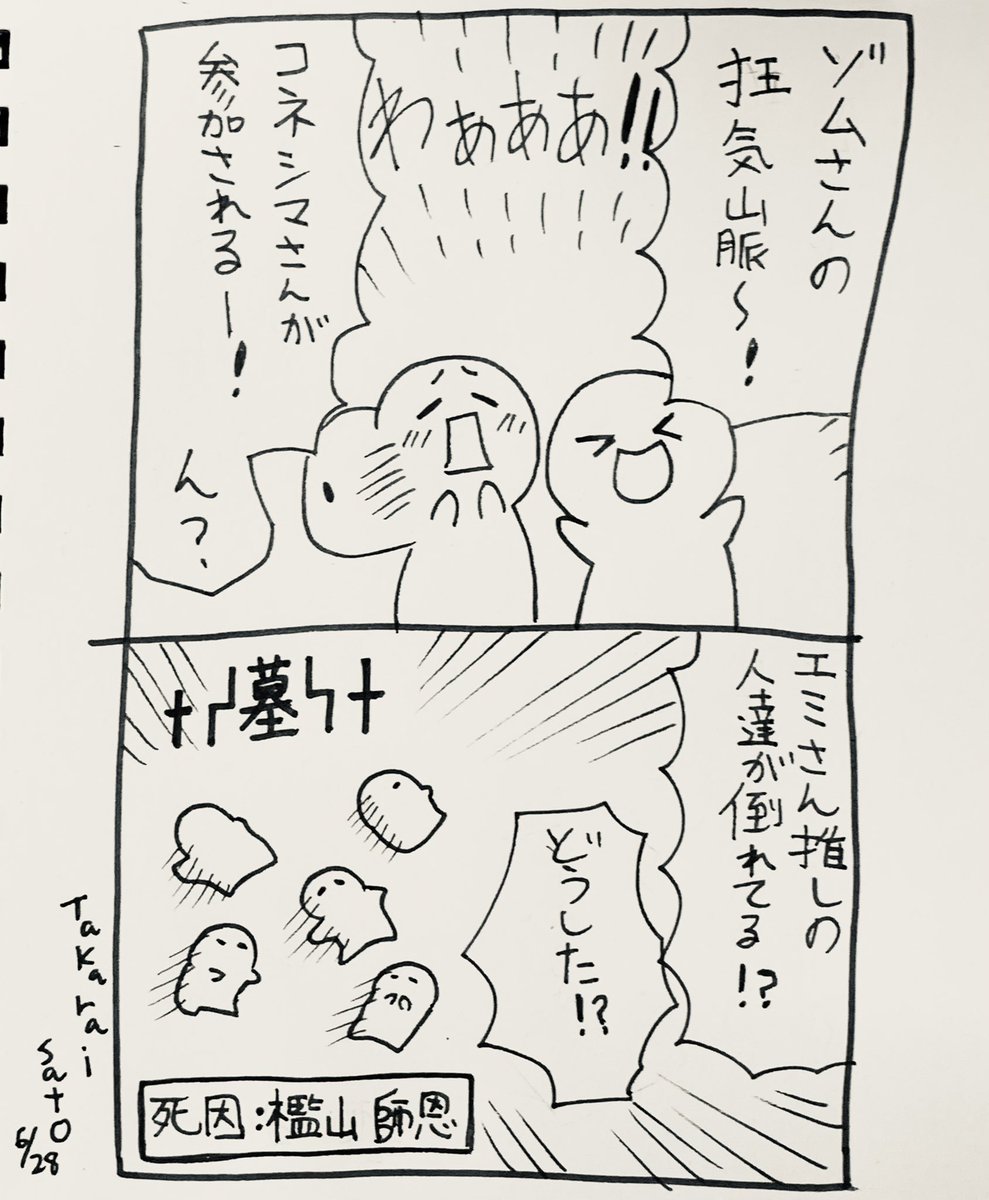 ゾムさんの
狂気山脈〜!
わぁぁあ!!
コネシマさんが
参加されるー!
ん?
エミさん推しの
人達が倒れてる!?
どうした!?
墓
死因:檻山 師恩
Takarai
Sato
6/28